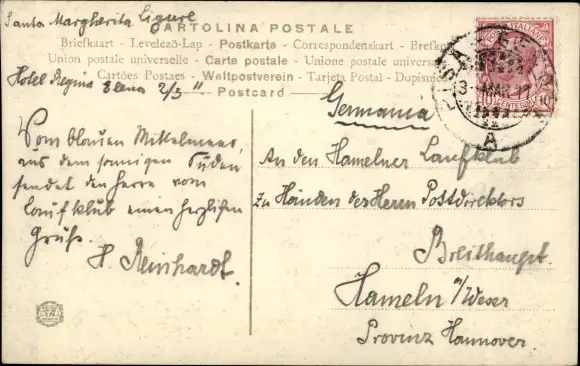 Santa Margherita Ligure
CARTOLINA POSTALE
Briefkaart - Levelező-Lap - Postkarte - Correspondenzkart - Brefkort
Union postale universelle - Carte postale - Unione postale universale
Cartões Postaes - Weltpostverein - Tarjeta Postal - Dopisnice
Postcard
Hotel Regina Elena 2/3 11
Vom blauen Mittelmeer,
aus dem sonnigen Süden
sendet den Herren vom
Laufklub einen herzlichen
Gruß.
H. Reinhardt.
POSTE ITALIANE
10 CENTESIMI 10
3 MAR 11
A
Germania
An den Hamelner Laufklub
Zu Händen des Herrn Postdirektors
Breithaupt.
Hameln a/Weser
Provinz Hannover